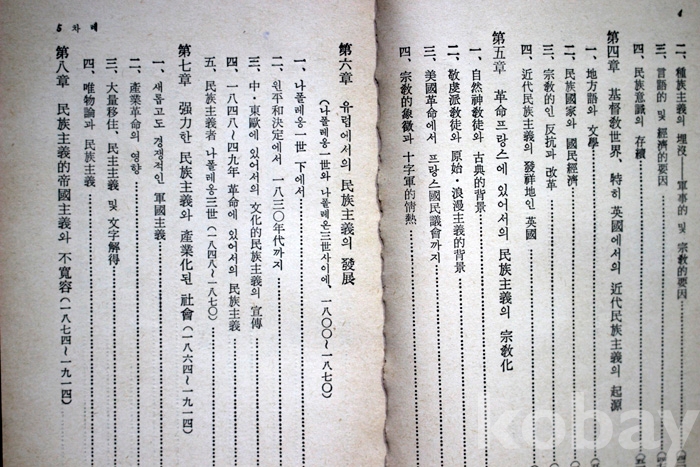 4
二、種族主義의 埋沒——軍事的 및 宗教的要因
三、言語的 및 經濟的要因
四、民族意識의 存續
第四章 基督教世界、特히 英國에서의 近代民族主義의 起源
一、地方語와 文學
二、民族國家와 國民經濟
三、宗教的인 反抗과 改革
四、近代民族主義의 發祥地인 英國
第五章 革命프랑스에 있어서의 民族主義의 宗教化
一、自然神教徒와 古典的背景
二、敬虔派教徒와 原始·浪漫主義的背景
三、美國革命에서 프랑스國民議會까지
四、宗教的象徵과 十字軍的情熱
5 차 례
第六章 유럽에서의 民族主義의 發展
(나폴레옹一世와 나폴레온三世사이에、一八〇〇~一八七〇)
一、나폴레옹一世 下에서
二、윈平和決定에서 一八三〇年代까지
三、中·東歐에 있어서의 文化的民族主義의 宣傳
四、一八四八~四九年 革命에 있어서의 民族主義
五、民族主義者 나폴레옹三世(一八四八~一八七〇)
第七章 强力한 民族主義와 産業化된 社會(一八六四~一九一四)
一、새롭고도 경쟁적인 軍國主義
二、産業革命의 영향
三、大量移住、民主主義 및 文字解得
四、唯物論과 民族主義
第八章 民族主義的帝國主義와 不寬容(一八七四~一九一四)
kobay